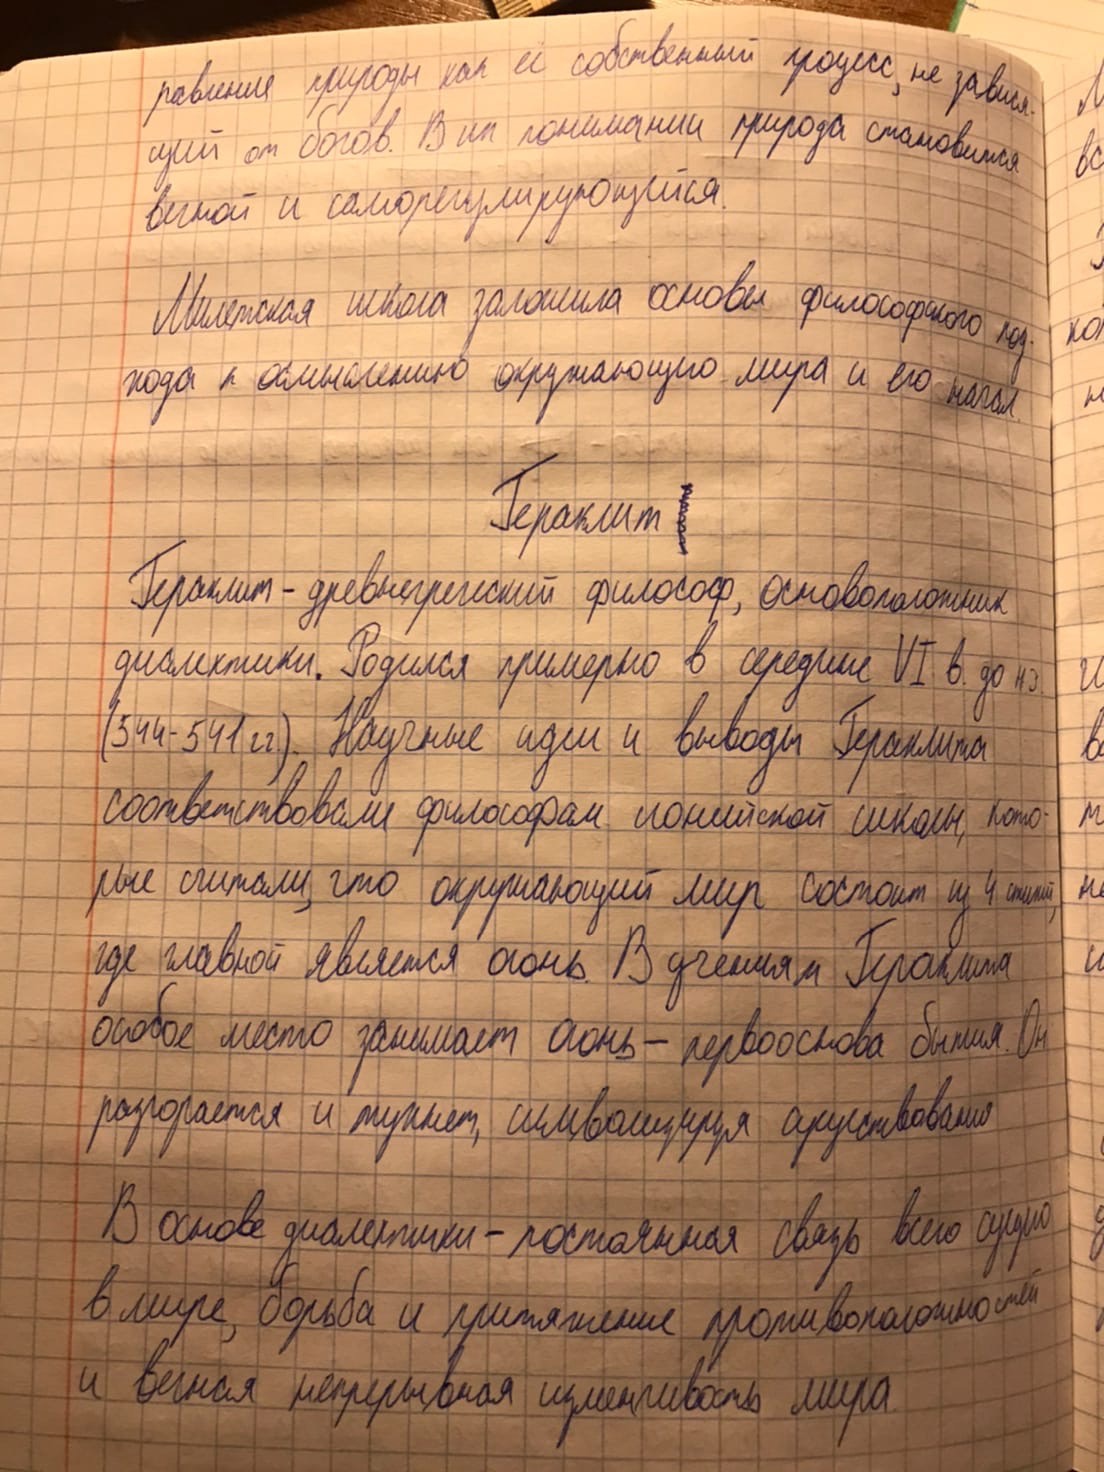 равление природы как её собственный процесс, не завися-
щий от богов. В их понимании природа становится
вечной и саморегулирующейся.
Милетская школа заложила основы философского под-
хода к осмыслению окружающего мира и его начал.
Гераклит
Гераклит - древнегреческий философ, основоположник
диалектики. Родился примерно в середине VI в. до н.э
(544-541 гг.). Научные идеи и выводы Гераклита
соответствовали философам ионийской школы, кото-
рые считали, что окружающий мир состоит из 4 стихий,
где главной является огонь. В учениях Гераклита
особое место занимает огонь - первооснова бытия. Он
разгорается и тухнет, символизируя
В основе диалектики - постоянная связь всего сущего
в мире, борьба и притяжение противоположностей
и вечная непрерывная изменчивость мира.